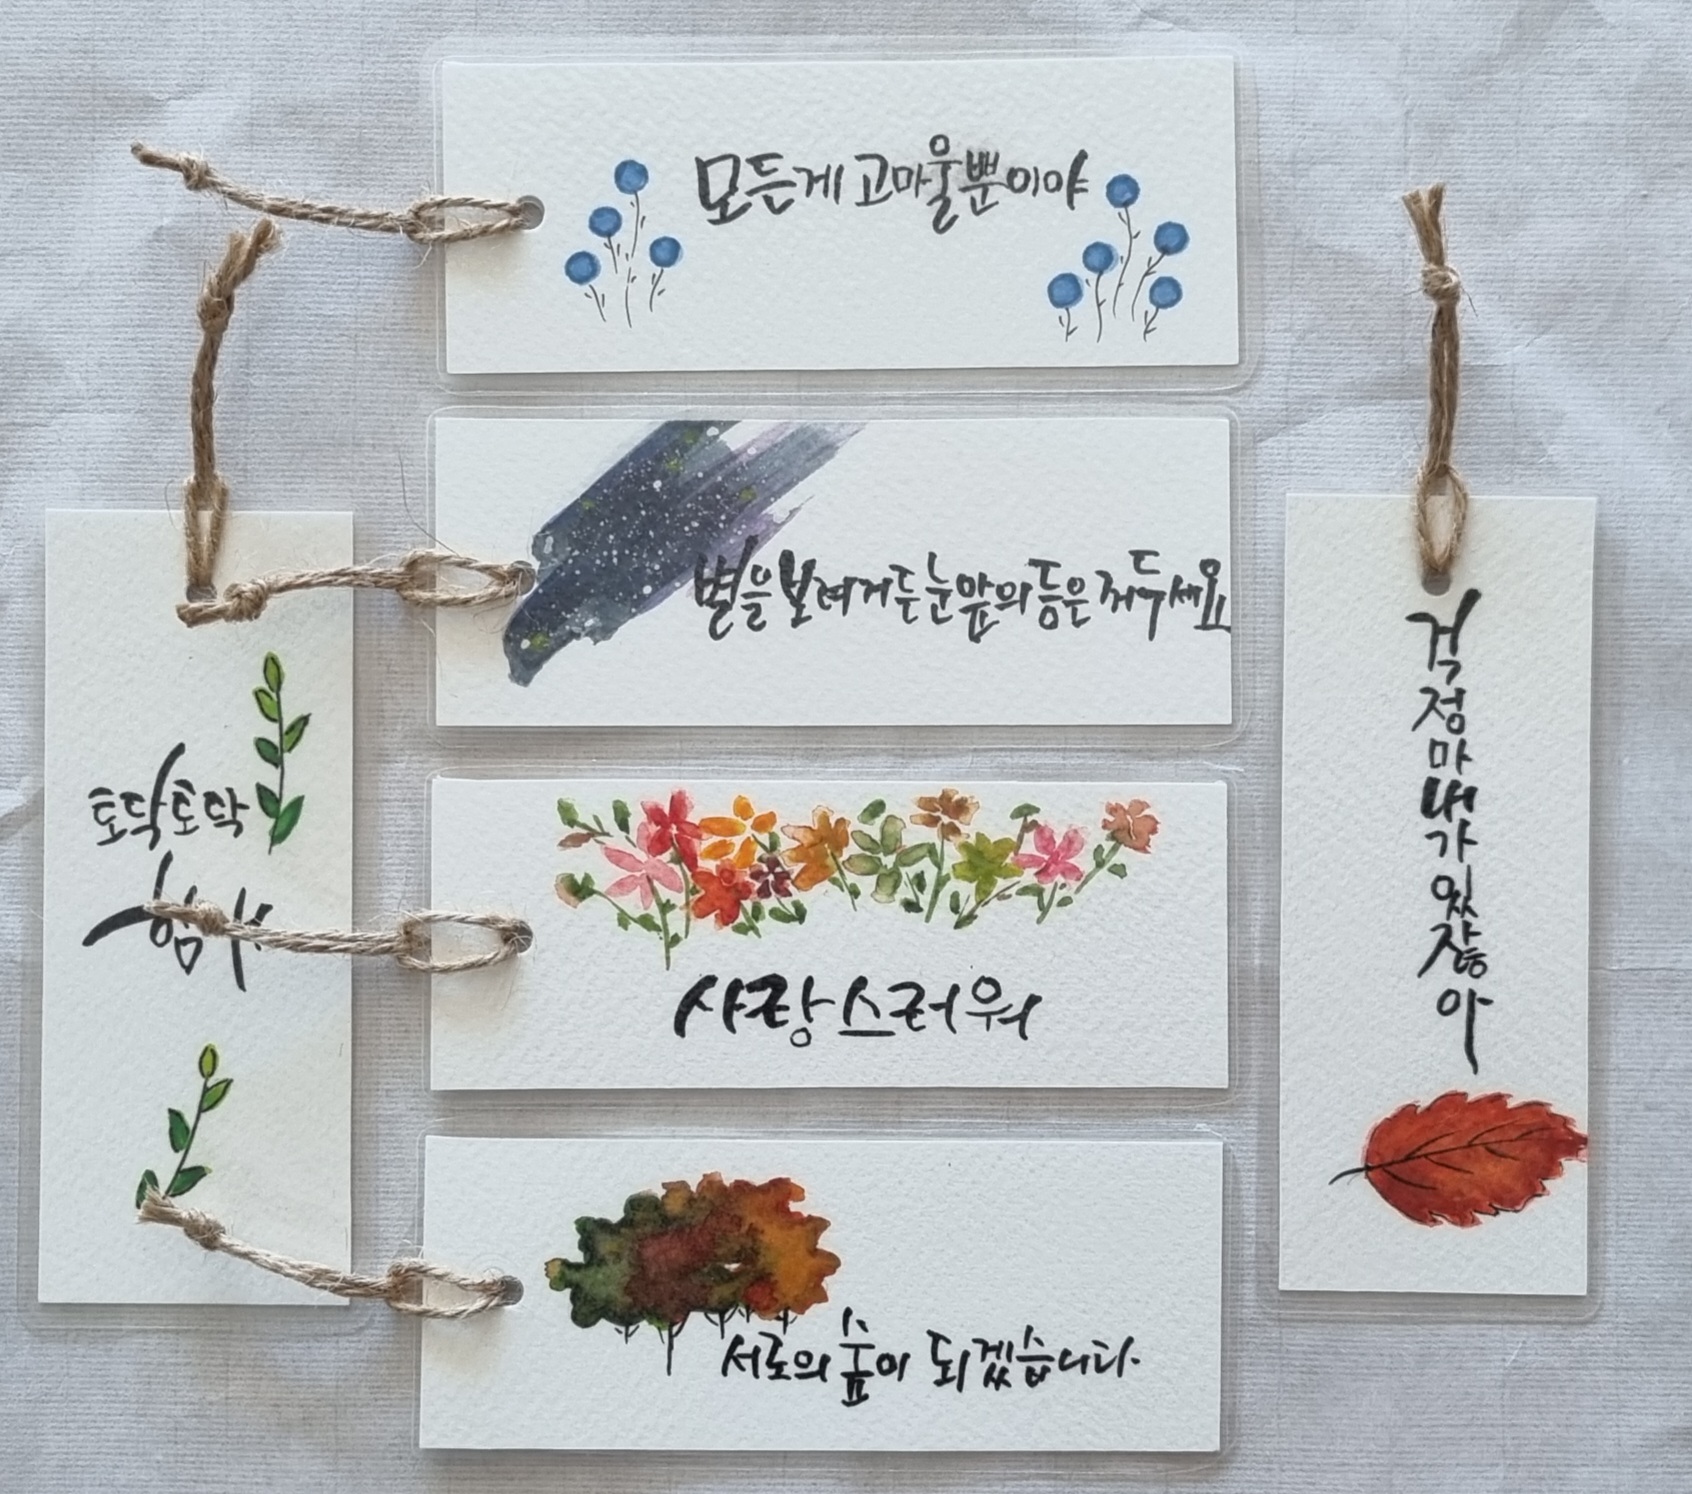 모든게 고마울뿐이야
별을 보려거든 눈앞의 등은 꺼두세요
토닥토닥
힘내
사랑스러워
서로의 숲이 되겠습니다.
걱
정
마
내
가
있
잖
아